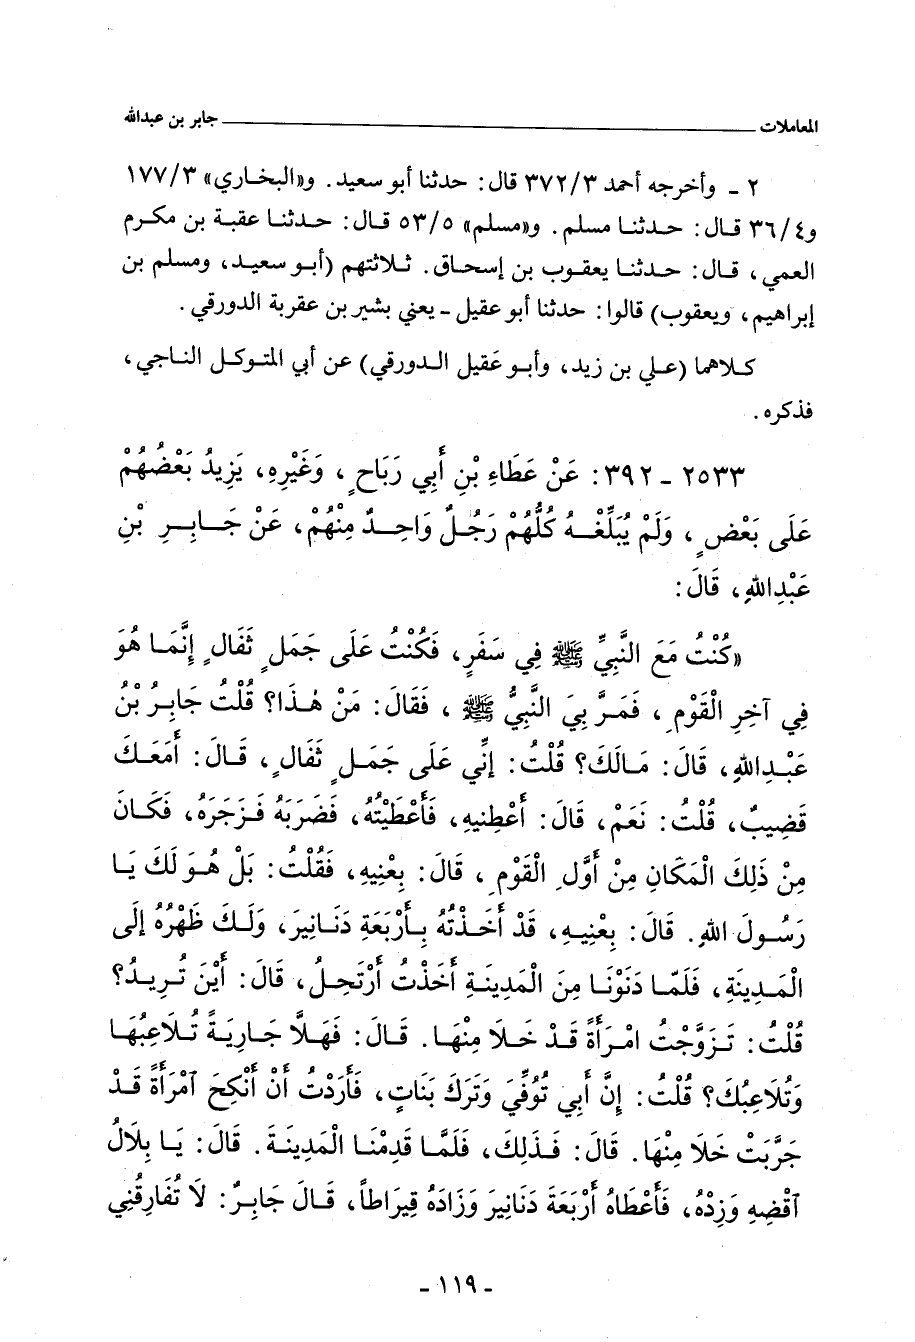 المعاملات ــــــــــــــــــــــــــــــــــــــــــ جابر بن عبدالله
٢ - وأخرجه أحمد ٣٧٢/٣ قال: حدثنا أبو سعيد. و«البخاري» ١٧٧/٣
و٣٦/٤ قال: حدثنا مسلم. و«مسلم» ٥٣/٥ قال: حدثنا عقبة بن مكرم
العمي، قال: حدثنا يعقوب بن إسحاق. ثلاثتهم (أبو سعيد، ومسلم بن
إبراهيم، ويعقوب) قالوا: حدثنا أبو عقيل - يعني بشير بن عقربة الدورقي.
كلاهما (علي بن زيد، وأبو عَقيل الدورقي) عن أبي المتوكل الناجي،
فذكره.
٢٥٣٣ - ٣٩٢: عَنْ عَطَاءِ بْنِ أَبِي رَبَاحٍ، وَغَيْرِهِ، يَزِيدُ بَعْضُهُمْ
عَلَى بَعْضٍ، وَلَمْ يُبَلِّغْهُ كُلُّهُمْ رَجُلٌ وَاحِدٌ مِنْهُمْ، عَنْ جَابِرِ بْنِ
عَبْدِاللهِ، قَالَ:
«كُنْتُ مَعَ النَّبِيِّ ﷺ فِي سَفَرٍ، فَكُنْتُ عَلَى جَمَلٍ ثَفَالٍ إِنَّمَا هُوَ
فِي آخِرِ الْقَوْمِ، فَمَرَّ بِيَ النَّبِيُّ ﷺ، فَقَالَ: مَنْ هٰذَا؟ قُلْتُ جَابِرُ بْنُ
عَبْدِاللهِ، قَالَ: مَالَكَ؟ قُلْتُ: إِنِّي عَلَى جَمَلٍ ثَفَالٍ، قَالَ: أَمَعَكَ
قَضِيبٌ، قُلْتُ: نَعَمْ، قَالَ: أَعْطِنِيهِ، فَأَعْطَيْتُهُ، فَضَرَبَهُ فَزَجَرَهُ، فَكَانَ
مِنْ ذَلِكَ الْمَكَانِ مِنْ أَوَّلِ الْقَوْمِ، قَالَ: بِعْنِيهِ، فَقُلْتُ: بَلْ هُوَ لَكَ يَا
رَسُولَ اللهِ. قَالَ: بِعْنِيهِ، قَدْ أَخَذْتُهُ بِأَرْبَعَةِ دَنَانِيرَ، وَلَكَ ظَهْرُهُ إِلَى
الْمَدِينَةِ، فَلَمَّا دَنَوْنَا مِنَ الْمَدِينَةِ أَخَذْتُ أَرْتَحِلُ، قَالَ: أَيْنَ تُرِيدُ؟
قُلْتُ: تَزَوَّجْتُ امْرَأَةً قَدْ خَلَا مِنْهَا. قَالَ: فَهَلَّا جَارِيَةً تُلَاعِبُهَا
وَتُلَاعِبُكَ؟ قُلْتُ: إِنَّ أَبِي تُوُفِّيَ وَتَرَكَ بَنَاتٍ، فَأَرَدْتُ أَنْ أَنْكِحَ آمْرَأَةً قَدْ
جَرَّبَتْ خَلَا مِنْهَا. قَالَ: فَذَلِكَ، فَلَمَّا قَدِمْنَا الْمَدِينَةَ. قَالَ: يَا بِلَالُ
آقْضِهِ وَزِدْهُ، فَأَعْطَاهُ أَرْبَعَةَ دَنَانِيرَ وَزَادَهُ قِيرَاطاً، قَالَ جَابِرٌ: لَا تُفَارِقُنِي
- ١١٩ -